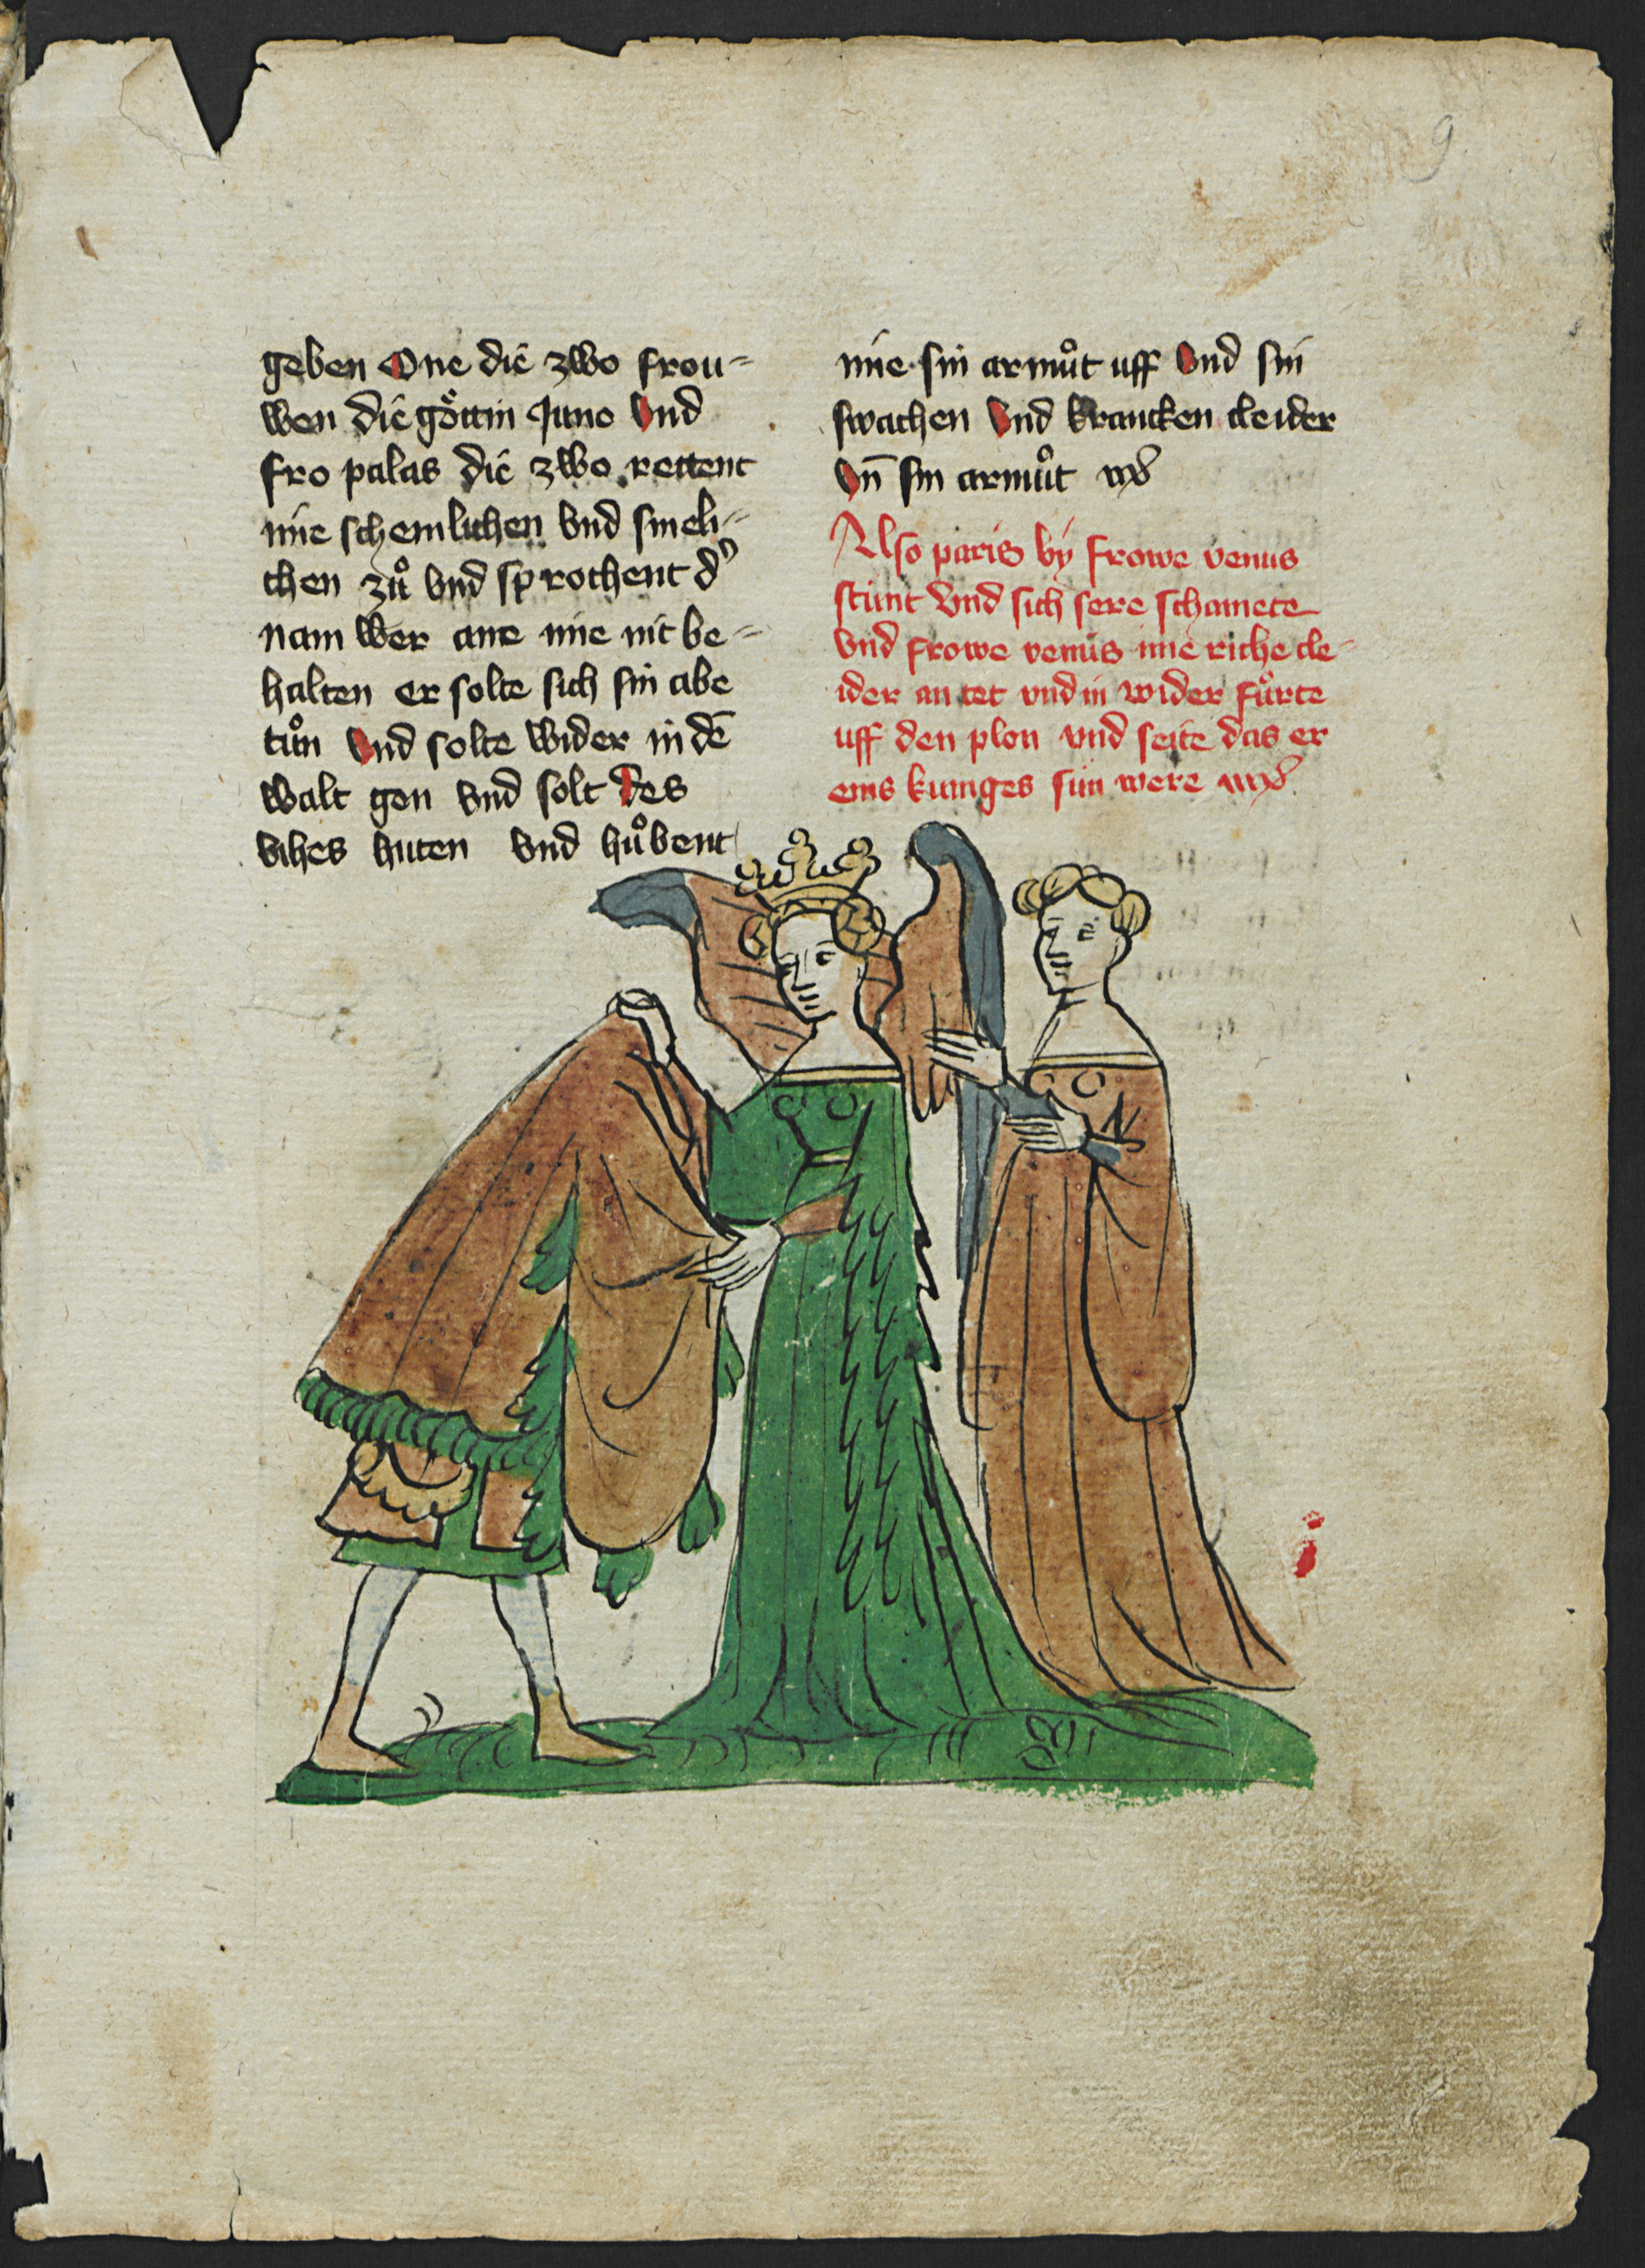 9
geben One die zwo frou=
wen die gӧttin Juno vnd
fro palas die zwo rettent
ime schemlichen vnd smeli=
chen zů vnd sprochent d'
nam wer ane ime nit be=
halten er solte sich sin abe
tůn vnd solte wider in dē
walt gon vnd solt des
vihes huten vnd hůbent
ime sin armůt uff vnd sin
swachen vnd krancken cleider
vn̄ sin armůt
Also paris by frowe venus
stunt vnd sich sere schamete
vnd frowe venus ime riche cle=
ider an tet vnd in wider fůrte
uff den plon vnd seite das er
eins kuniges sun were